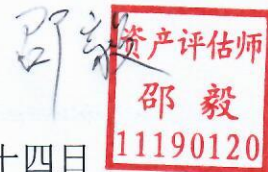 邵毅
资产评估师
邵毅
11190120
十四日